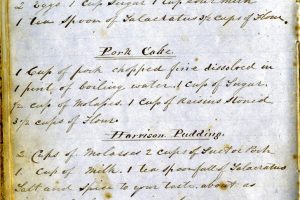 2 Eggs 1 Cup Sugar 1 Cup sour milk
1 Tea Spoon of Salacratus 3½ Cups of Flour.
Pork Cake.
1 Cup of pork chopped fine dissolved in
1 pint of boiling water, 1 Cup of Sugar
½ cup of Molases. 1 Cup of Raisins Stoned
3½ cups of Flour
Harrison Pudding.
2 Cups of Molasses 2 cups of Suet or Pork
1 Cup of Milk. 1 tea spoonfull of Salacratus
Salt and Spice to your taste. about as